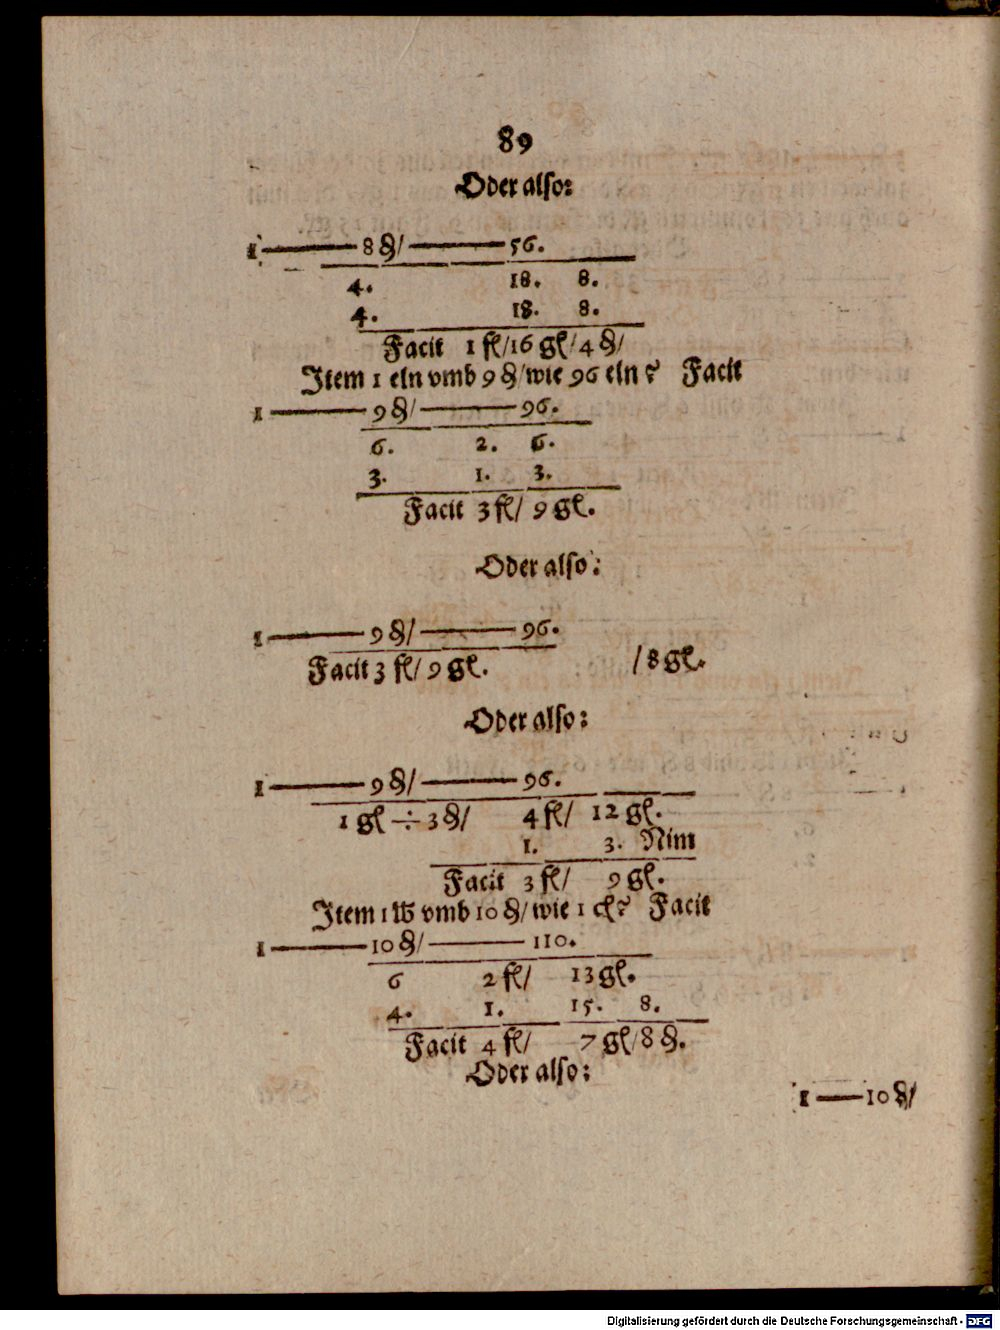 89
Oder also:
1 — 8 ₰/ — 56.
4. 18. 8.
4. 18. 8.
Facit 1 fl/16 gl/4 ₰/
Item 1 eln vmb 9 ₰/wie 96 eln? Facit
1 — 9 ₰/ — 96.
6. 2. 6.
3. 1. 3.
Facit 3 fl/ 9 gl.
Oder also:
1 — 9 ₰/ — 96.
Facit 3 fl/ 9 gl. /8 gl.
Oder also:
1 — 9 ₰/ — 96.
1 gl ÷ 3 ₰/ 4 fl/ 12 gl.
1. 3. Nim
Facit 3 fl/ 9 gl.
Item 1 ℔ vmb 10 ₰/wie 1 ? Facit
1 — 10 ₰/ — 110.
6 2 fl/ 13 gl.
4. 1. 15. 8.
Facit 4 fl/ 7 gl/8 ₰.
Oder also:
1 — 10 ₰/
Digitalisierung gefördert durch die Deutsche Forschungsgemeinschaft - DFG